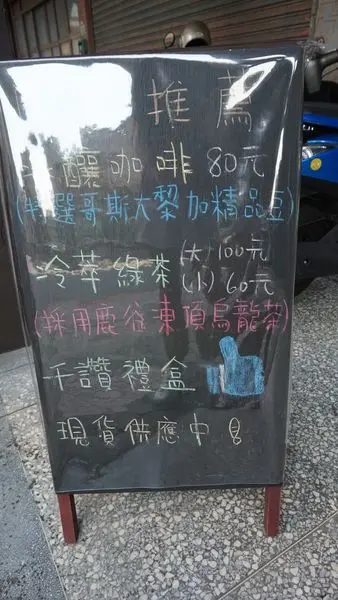 推薦
釀咖啡 80元
(特選哥斯大黎加精品豆)
冷萃綠茶 (大) 100元
(小) 60元
(採用鹿谷凍頂烏龍茶)
千讚禮盒
現貨供應中